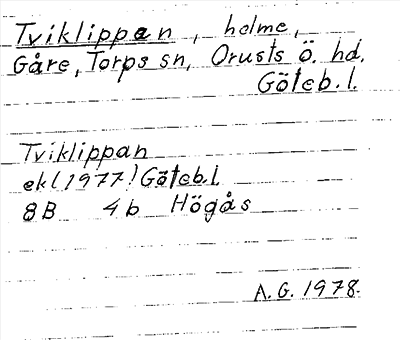 Tviklippan, holme,
Gåre, Torps sn, Orusts ö. hd.
Göteb. l.
Tviklippan
ek (1977) Göteb. l.
8B 4b Högås
A. G. 1978.